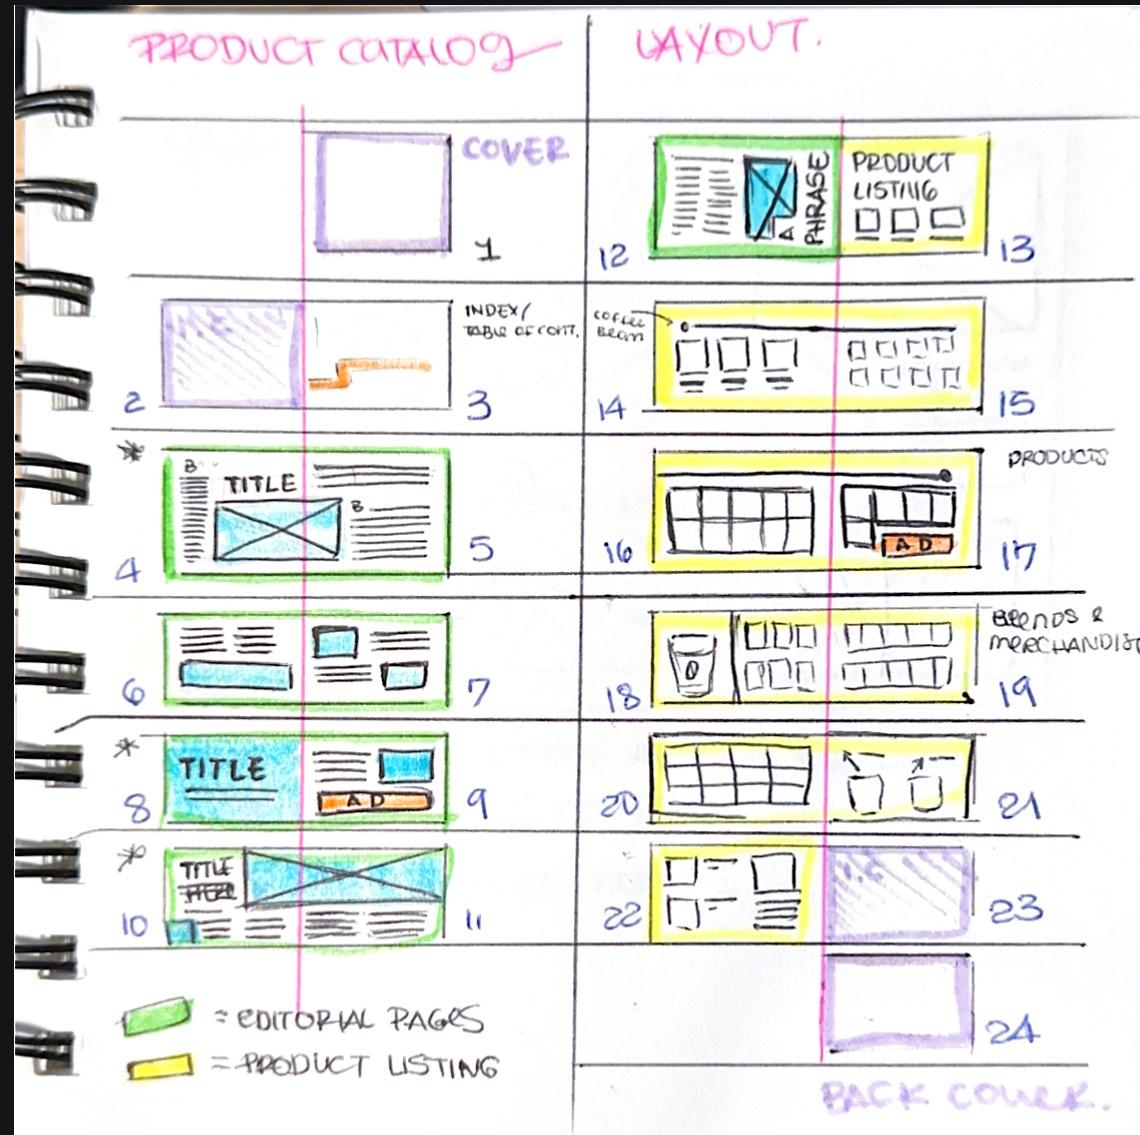 PRODUCT CATALOG
LAYOUT.
COVER
1
I.C
2
INDEX/
TABLE OF CONT.
3
*
B
TITLE
B
4
5
6
7
*
TITLE
AD
8
9
*
TITLE
10
11
= EDITORIAL PAGES
= PRODUCT LISTING
12
A PHRASE
PRODUCT
LISTING
13
COFFEE
BEAN
14
15
PRODUCTS
16
AD
17
BLENDS &
MERCHANDISE
18
19
20
21
22
I.C
23
24
BACK COVER.